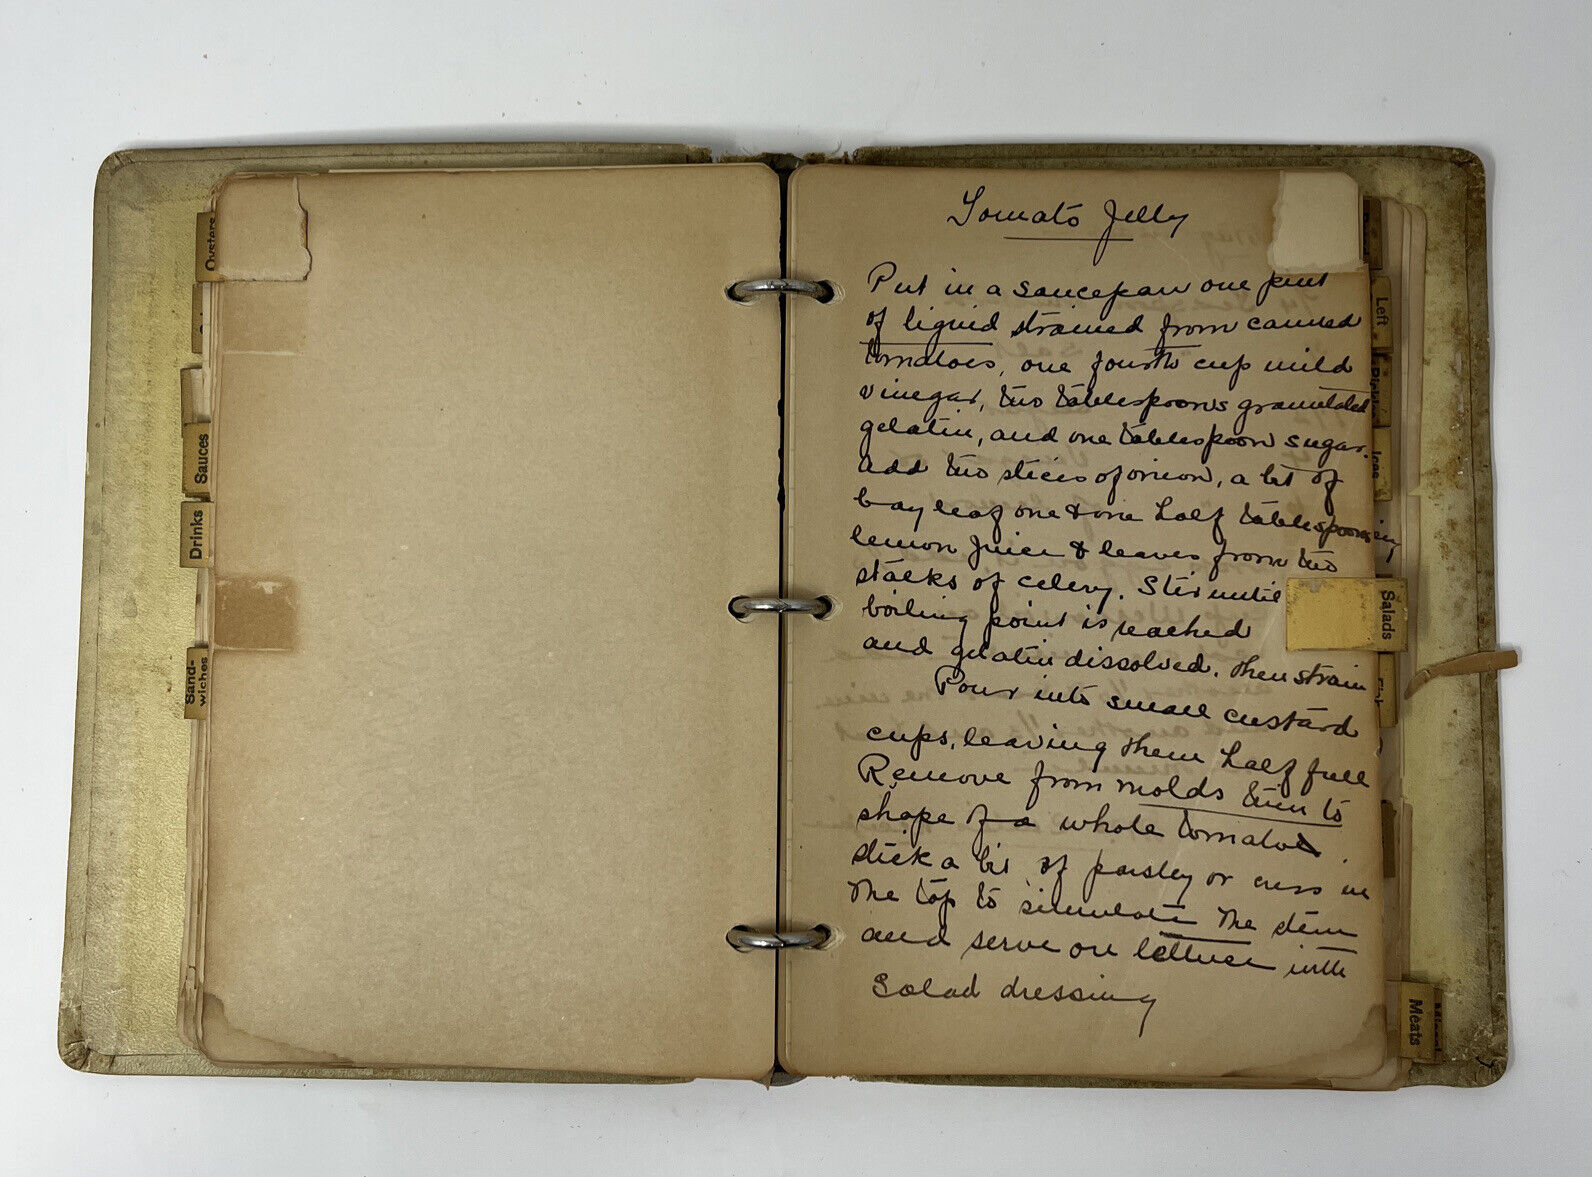 Oysters
Sauces
Drinks
Sand-
wiches
Tomato Jelly
Put in a saucepan one pint
of liquid strained from canned
tomatoes, one fourth cup mild
vinegar, two tablespoons granulated
gelatin, and one tablespoon sugar.
Add two slices of onion, a bit of
bay leaf one & one half tablespoons
lemon juice & leaves from two
stalks of celery. Stir until
boiling point is reached
and gelatin dissolved. Then strain
Pour into small custard
cups, leaving them half full
Remove from molds trim to
shape of a whole tomato
stick a bit of parsley or cress in
the top to simulate the stem
and serve on lettuce with
Salad dressing
Left
Ices
Salads
Fish
Meats